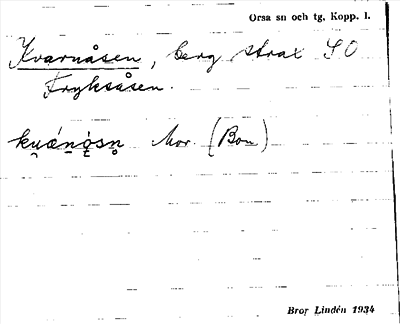 Orsa sn och tg, Kopp. l.
Kvarnåsen, berg strax SO
Fryksåsen.
ku̯ánǫ́sn̥ Mor. (Bon)
Bror Lindén 1934